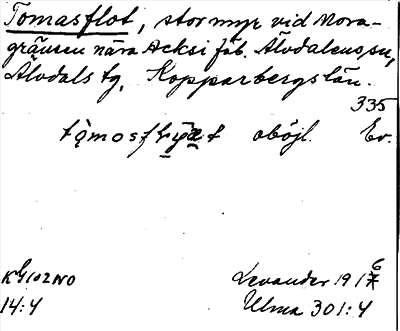 Tomasflot, stor myr vid Mora-
gränsen nära Acksi fäb. Älvdalens sn,
Älvdals tg, Kopparbergs län.
335
oböjl. Ev.
Levander 1916
14:4
Ulma 301:4